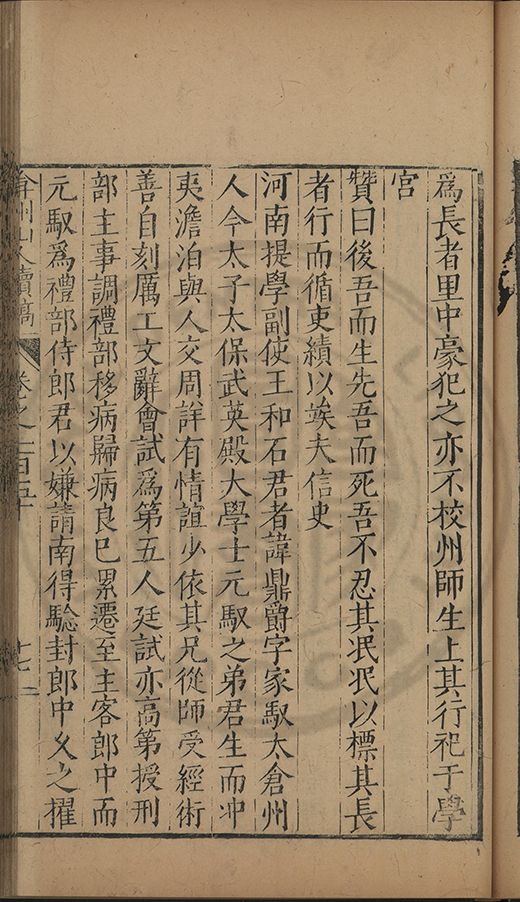 為長者里中豪犯之亦不校州師生上其行祀于學
宮
贊曰後吾而生先吾而死吾不忍其泯泯以標其長
者行而循吏績以竢夫信史
河南提學副使王和石君者諱鼎爵字家馭太倉州
人今太子太保武英殿大學士元馭之弟君生而冲
夷澹泊與人交周詳有情誼少依其兄從師受經術
善自刻厲工文辭會試為第五人廷試亦高第授刑
部主事調禮部移病歸病良已累遷至主客郎中而
元馭為禮部侍郎君以嫌請南得驗封郎中久之擢
弇州山人續稿
卷之一百五十